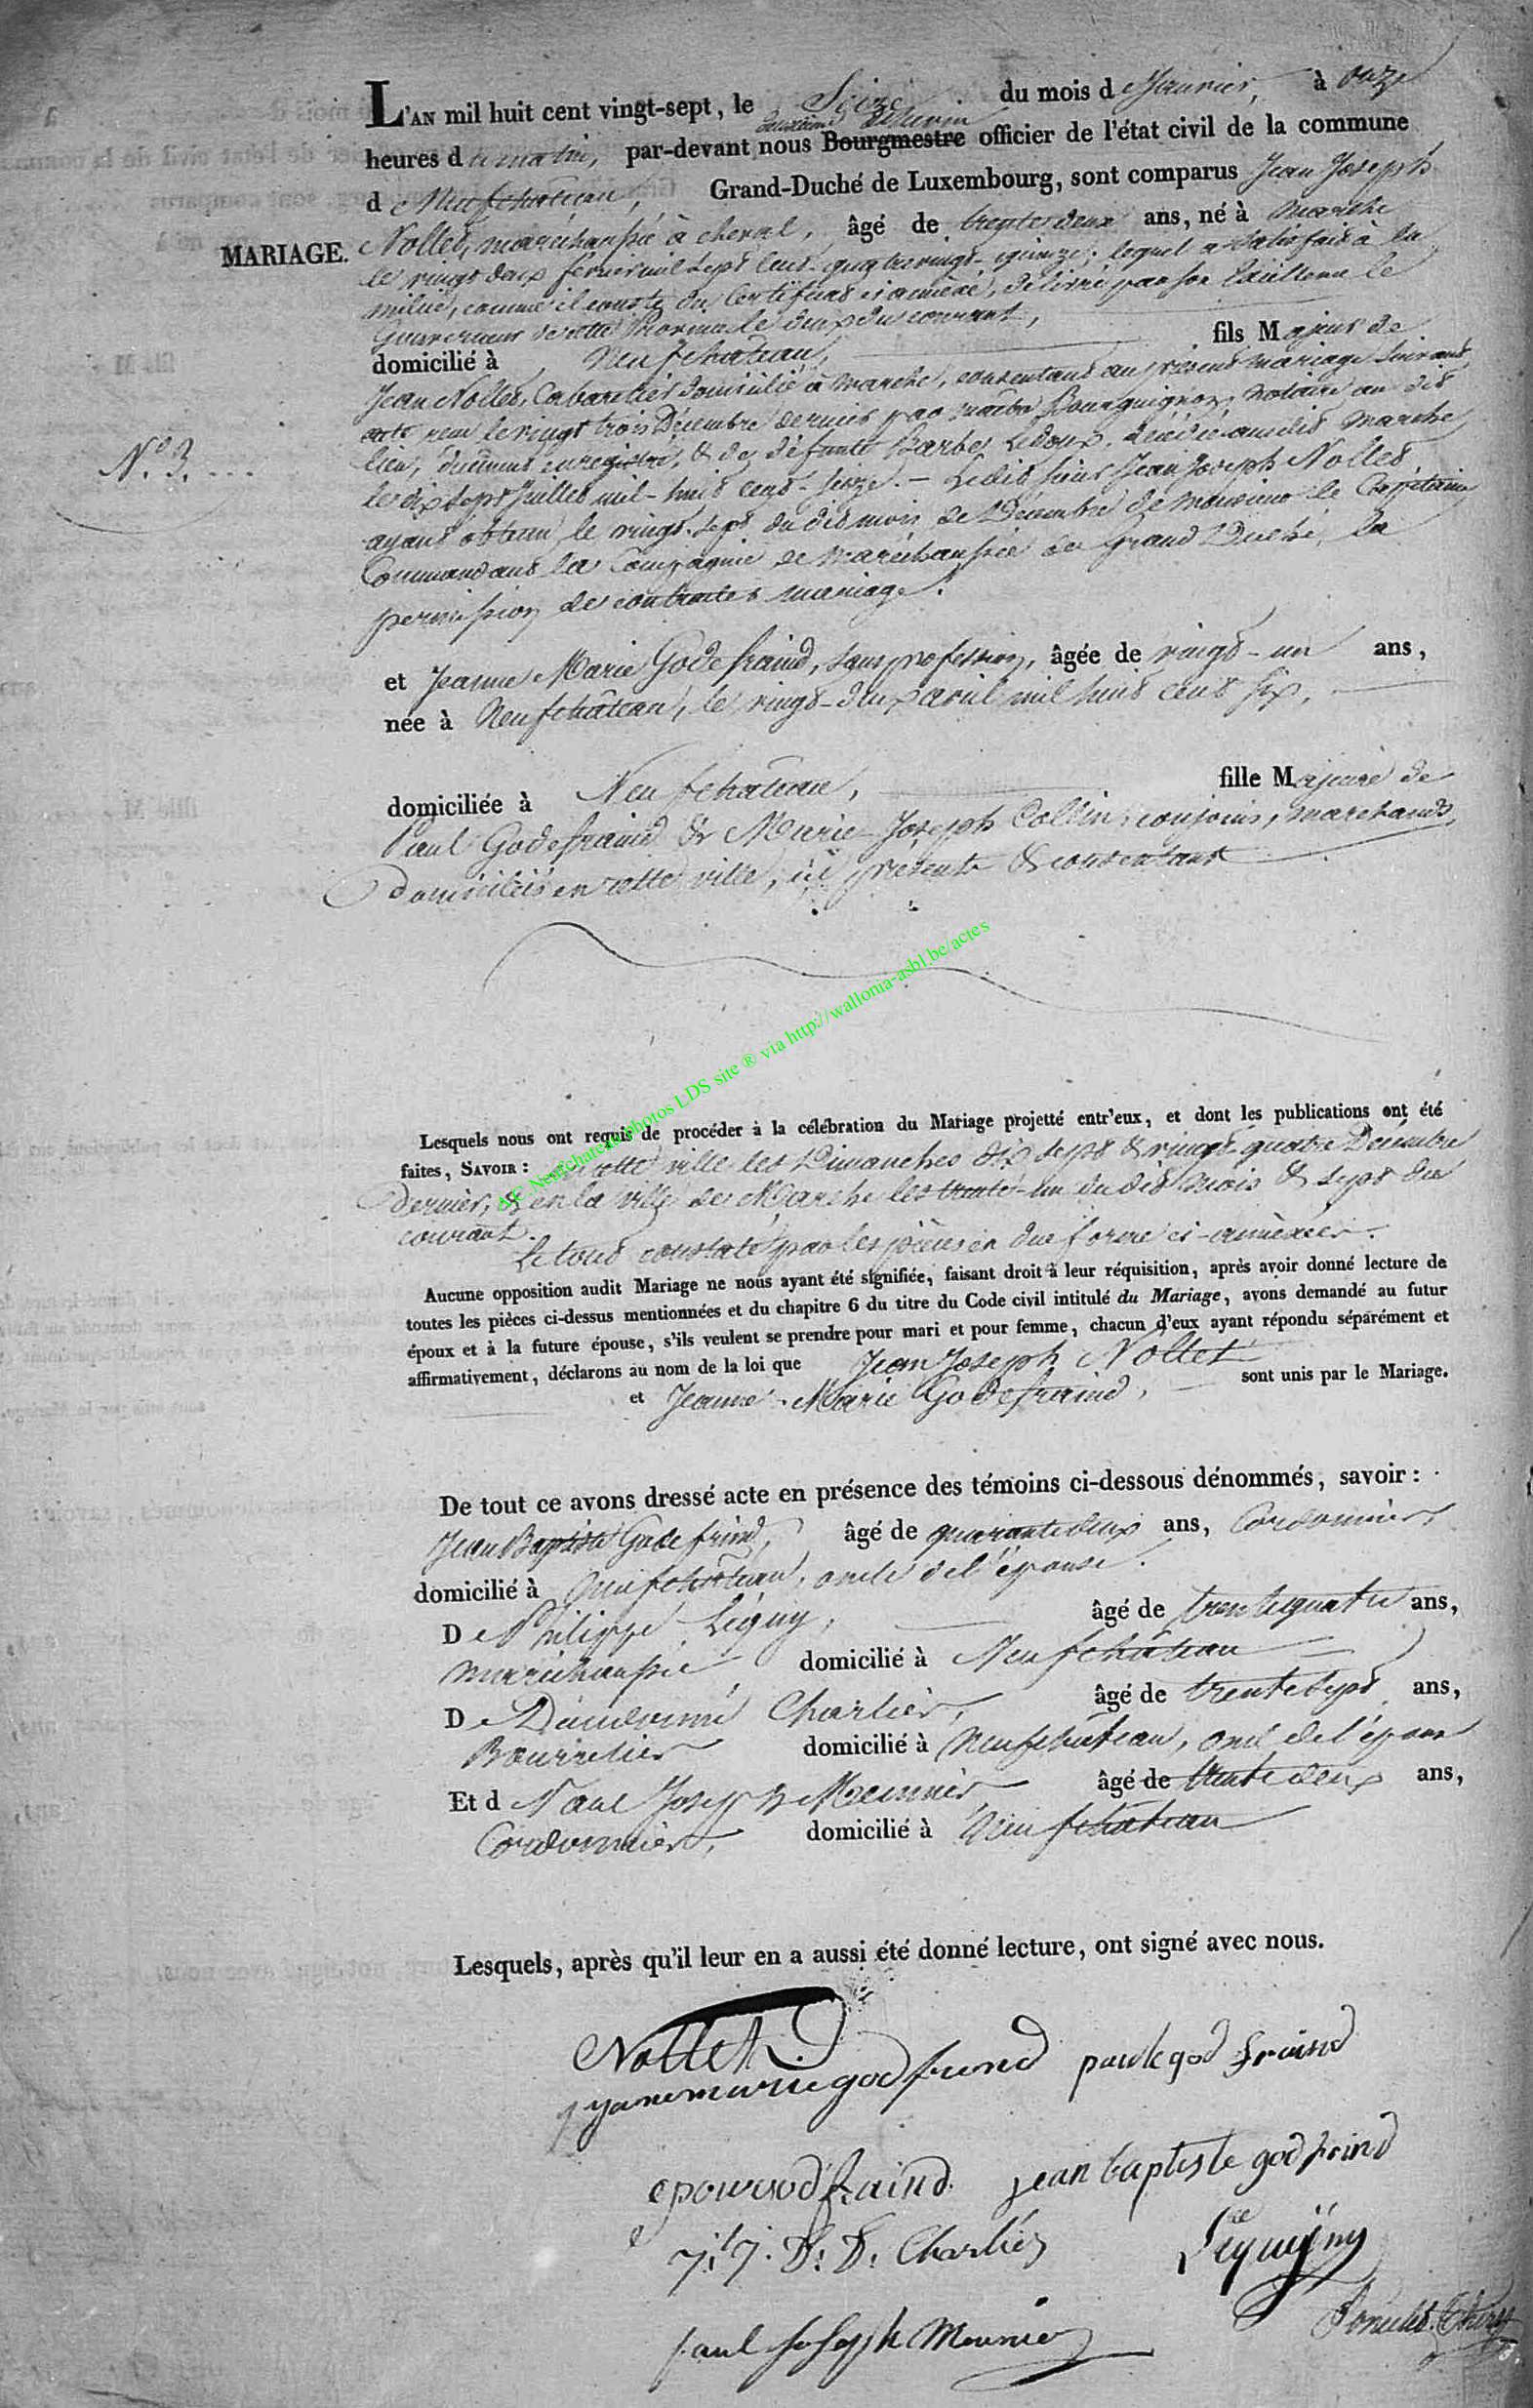 L'AN mil huit cent vingt-sept, le Seize du mois de Janvier, à onze
deuxième Echevin
heures du matin, par-devant nous Bourgmestre officier de l'état civil de la commune
de Neufchateau, Grand-Duché de Luxembourg, sont comparus Jean Joseph
MARIAGE. Nollet, maréchaussée à cheval, âgé de trente deux ans, né à Marche
le vingt deux février mil sept cent quatre vingt quinze, lequel a satisfait à la
milice, comme il conste du Certificat ci annexé, délivré par son Excellence le
Gouverneur de cette Province le deux du courant,
domicilié à Neufchateau, fils Majeur de
Jean Nollet, Cabaretier domicilié à Marche, consentant au présent mariage suivant
acte reçu le vingt trois Décembre dernier par maître Bourguignon, notaire au dit
lieu, dûment enregistré, & de défunte Barbe Ledoux, décédée audit Marche
N.o 3.
le dix sept Juillet mil huit cent seize. — Ledit sieur Jean Joseph Nollet,
ayant obtenu le vingt-sept du dit mois de Décembre de Monsieur le Capitaine
Commandant la Compagnie de Maréchaussée du Grand Duché, la
permission de contracter mariage.
et Jeanne Marie Godefraind, sans profession, âgée de vingt-un ans,
née à Neufchâteau, le vingt-deux avril mil huit cent six,
domiciliée à Neufchateau, fille Majeure de
Paul Godefraind & Marie-Joseph Collin, conjoins, marchands,
domiciliés en cette ville, ici présents & consentant
A.C Neufchateau photos LDS site ® via http://wallonia-asbl.be/actes
Lesquels nous ont requis de procéder à la célébration du Mariage projetté entr'eux, et dont les publications ont été
faites, SAVOIR : en cette ville les Dimanches dix sept & vingt-quatre Décembre
dernier, & en la ville de Marche les trente-un du dit mois & sept du
courant.
Le tout constaté par les pièces en due forme ci-annexées.
Aucune opposition audit Mariage ne nous ayant été signifiée, faisant droit à leur réquisition, après avoir donné lecture de
toutes les pièces ci-dessus mentionnées et du chapitre 6 du titre du Code civil intitulé du Mariage, avons demandé au futur
époux et à la future épouse, s'ils veulent se prendre pour mari et pour femme, chacun d'eux ayant répondu séparément et
affirmativement, déclarons au nom de la loi que Jean Joseph Nollet
et Jeanne-Marie Godefraind, sont unis par le Mariage.
De tout ce avons dressé acte en présence des témoins ci-dessous dénommés, savoir :
Jean Baptiste Godefrind, âgé de quarante deux ans, Cordonnier,
domicilié à Neufchateau, oncle de l'épouse.
De Philippe Leguy, âgé de trente quatre ans,
maréchaussée domicilié à Neufchateau
De Dieudonné Charlier, âgé de trente sept ans,
Bourrelier domicilié à Neufchâteau, oncle de l'épouse
Et de Paul Joseph Meunier, âgé de trente deux ans,
Cordonnier, domicilié à Neufchateau
Lesquels, après qu'il leur en a aussi été donné lecture, ont signé avec nous.
Nollet
yanemariegodfrend paul godfraind
godfraind jean baptiste godfrind
D: D: Charlier
paul Joseph Meunier